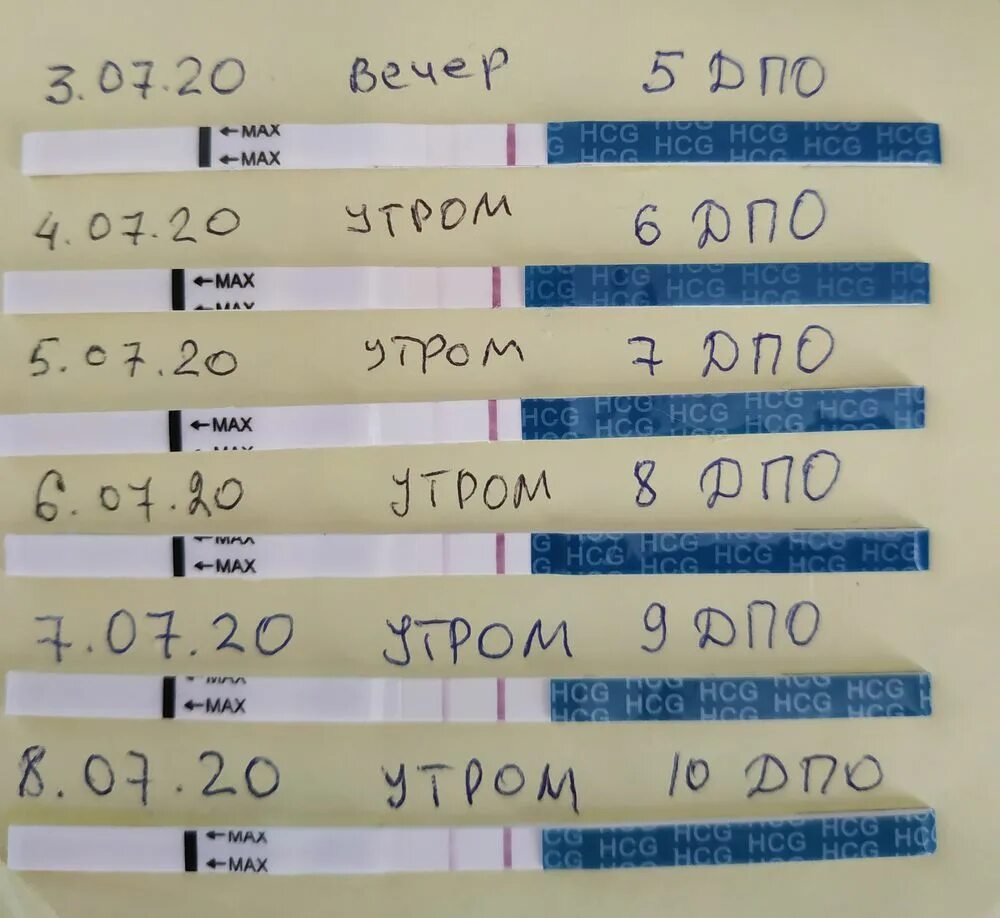 3.07.20 Вечер 5 ДПО
←MAX HCG HCG HCG HCG HCG
←MAX HCG HCG HCG HCG HCG
4.07.20 УТРОМ 6 ДПО
←MAX HCG HCG HCG HCG HC
←MAX HCG HCG HCG HCG
5.07.20 УТРОМ 7 ДПО
←MAX HCG HCG HCG HCG HCG
6.07.20 УТРОМ 8 ДПО
←MAX
←MAX HCG HCG HCG HCG HCG
7.07.20 УТРОМ 9 ДПО
←MAX HCG HCG HCG HCG HCG
8.07.20 УТРОМ 10 ДПО
←MAX CG HCG HCG HCG HCG HCG
←MAX CG HCG HCG HCG HCG